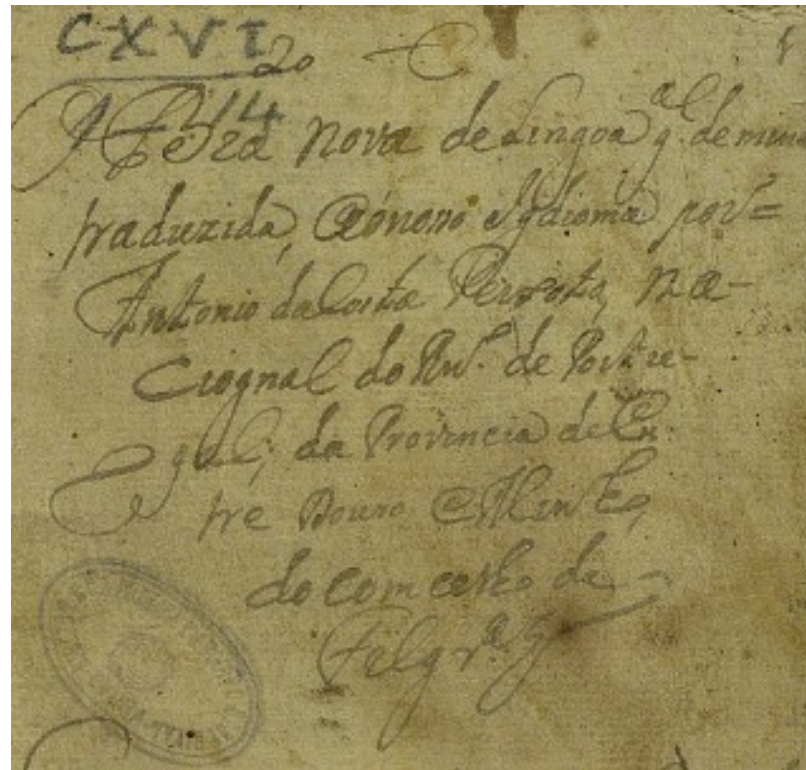 CXVI
20
14
Obra Nova de Lingoa g.al de mina
traduzida, ao nono Igdioma por=
Antonio da Costa Peixoto, Na-
Ciognal do Rn.º de Portu-
gal, da Provincia de En-
tre Douro e Minho,
do comcelho de
Felgr.as